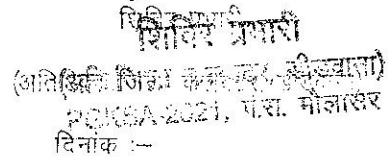 शिविर प्रभारी
(अतिरिक्त जिला कलक्टर, डीडवाना)
PGKSA-2021, पं.स. मौलासर
दिनांक :–